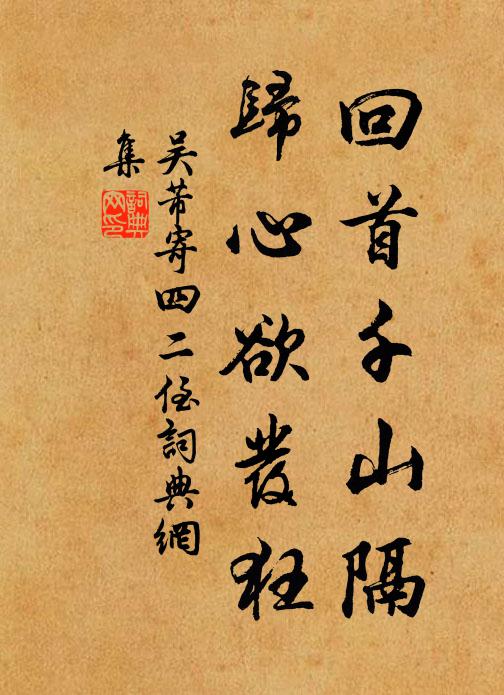 回首千山隔
歸心欲發狂
吴芾寄四二侄詞典網
集
詞典
网印